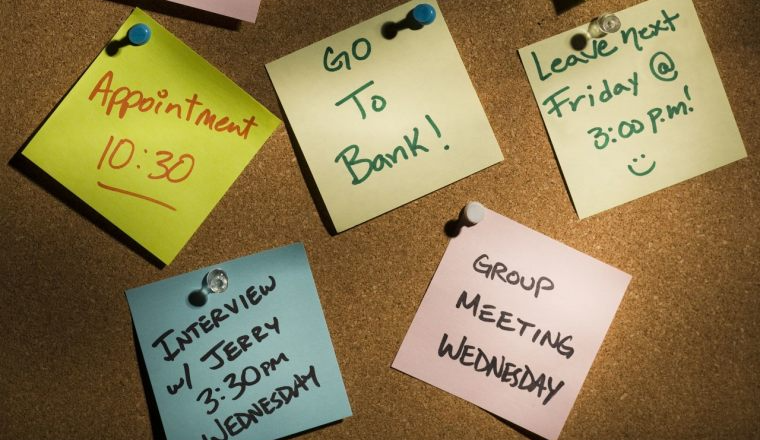 Appointment
10:30
GO
To
Bank!
Leave next
Friday @
3:00 p.m!
INTERVIEW
w/ JERRY
3:30PM
WEDNESDAY
GROUP
MEETING
WEDNESDAY